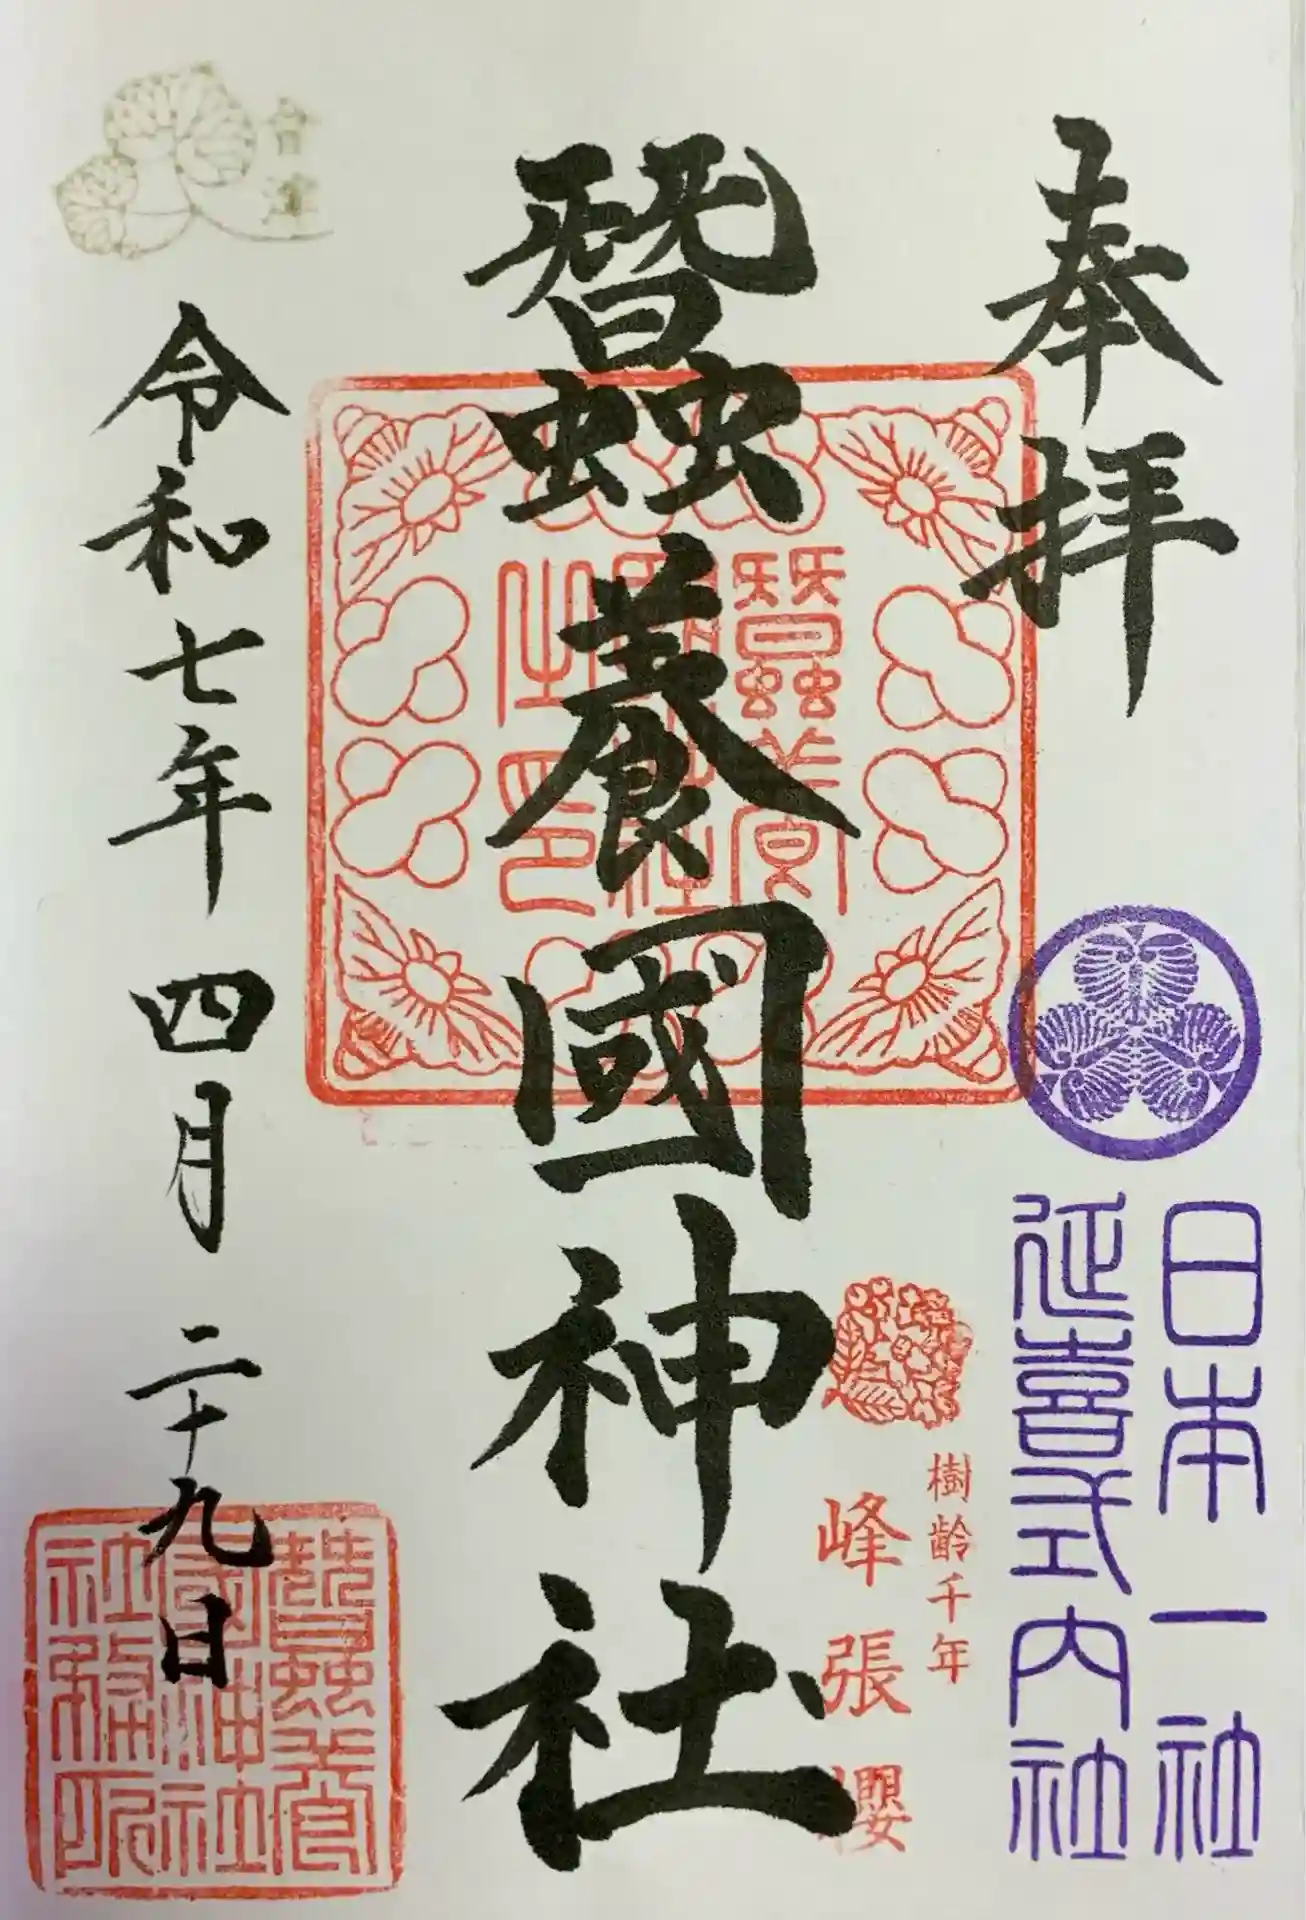 奉拝
日本一社
延喜式内社
樹齢千年
峰張櫻
蠶養國神社
蠶養國神社之印
令和七年四月二十九日
蠶養國神社務所
會津